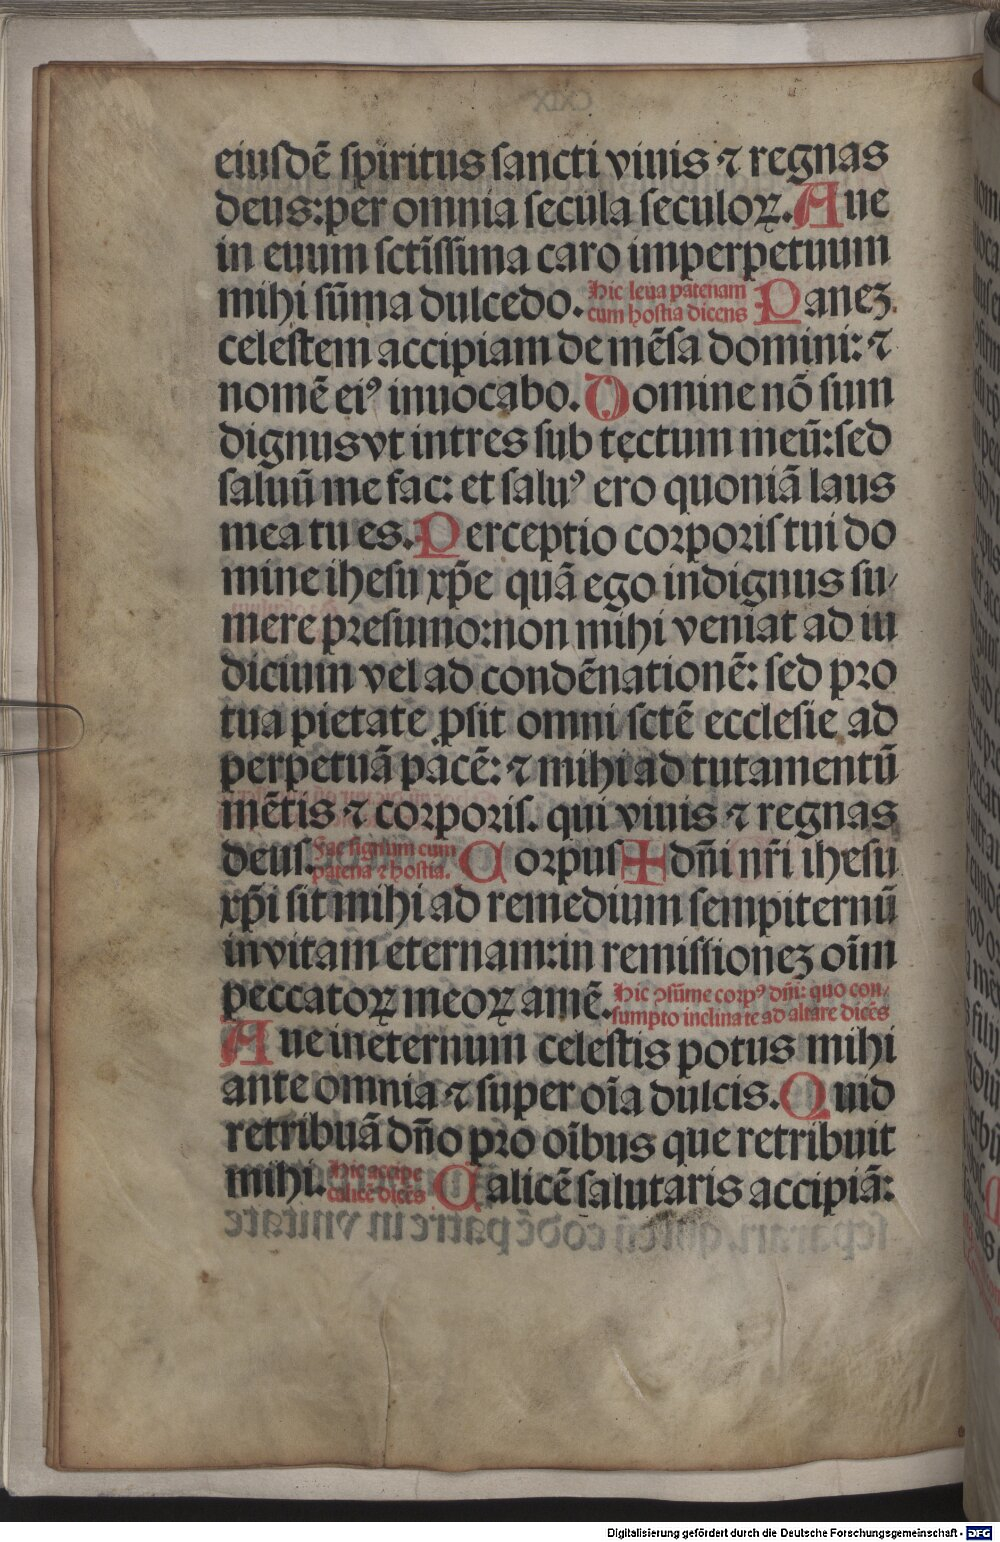 eiusdē spiritus sancti viuis ⁊ regnas
deus: per omnia secula seculoꝝ. Aue
in euum sctīssima caro imperpetuum
mihi sūma dulcedo. Hic leua patenam cum hostia dicens Panez
celestem accipiam de mēsa domini: ⁊
nomē eiꝰ inuocabo. Domine nō sum
dignus vt intres sub tectum meū: sed
saluū me fac: et saluꝰ ero quoniā laus
mea tu es. Perceptio corporis tui do
mine ihesu xp̄e quā ego indignus su/
mere presumo: non mihi veniat ad iu
dicium vel ad condēnationē: sed pro
tua pietate ꝓsit omni sctē ecclesie ad
perpetuā pacē: ⁊ mihi ad tutamentū
mētis ⁊ corporis. qui viuis ⁊ regnas
deus. Fac signum cum patena ⁊ hostia. Corpus ✠ dn̄i nr̄i ihesu
xp̄i sit mihi ad remedium sempiternū
in vitam eternam: in remissionez oīm
peccatoꝝ meoꝝ amē. Hic ꝯsūme corpꝰ dn̄i: quo con/
sumpto inclinate ad altare dicēs
Aue in eternum celestis potus mihi
ante omnia ⁊ super oīa dulcis. Quid
retribuā dn̄o pro oībus que retribuit
mihi. Hic accipe calicē dicēs Calicē salutaris accipiā:
Digitalisierung gefördert durch die Deutsche Forschungsgemeinschaft - DFG